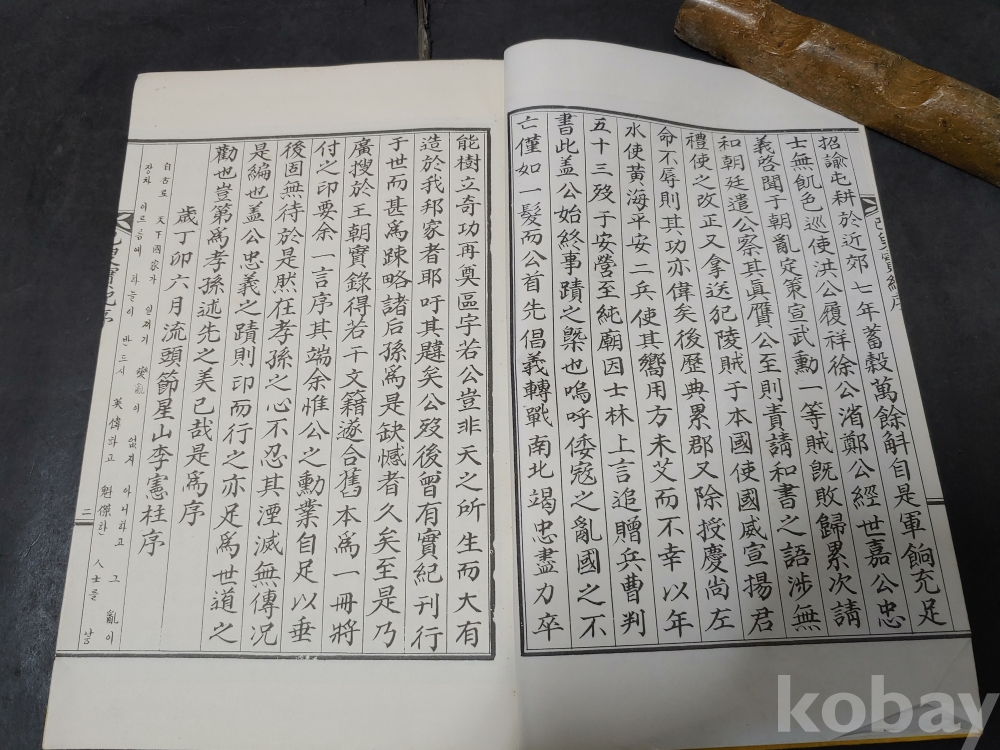 招諭屯耕於近郊七年蓄穀萬餘斛自是軍餉充足
士無飢色巡使洪公履祥徐公渻鄭公經世嘉公忠
義啓聞于朝亂定策宣武勳一等賊旣敗歸累次請
和朝廷遣公察其眞贋公至則責請和書之語涉無
禮使之改正又拿送犯陵賊于本國使國威宣揚君
命不辱則其功亦偉矣後歷典累郡又除授慶尚左
水使黃海平安二兵使其嚮用方未艾而不幸以年
五十三歿于安營至純廟因士林上言追贈兵曹判
書此盖公始終事蹟之槩也嗚呼倭寇之亂國之不
亡僅如一髮而公首先倡義轉戰南北竭忠盡力卒
能樹立奇功再奠區宇若公豈非天之所生而大有
造於我邦家者耶吁其韙矣公歿後曾有實紀刊行
于世而甚爲疎略諸后孫爲是缺憾者久矣至是乃
廣搜於王朝實錄得若干文籍遂合舊本爲一冊將
付之印要余一言序其端余惟公之勳業自足以垂
後固無待於是然在孝孫之心不忍其湮滅無傳況
是編也盖公忠義之蹟則印而行之亦足爲世道之
勸也豈第爲孝孫述先之美已哉是爲序
歲丁卯六月流頭節星山李憲柱序
自古로 天下國家가 일찍기 變亂이 없지 아니하고 그 亂이
장차 이르름에 하늘이 반드시 英偉하고 魁傑한 人士를 낳
二
kobay